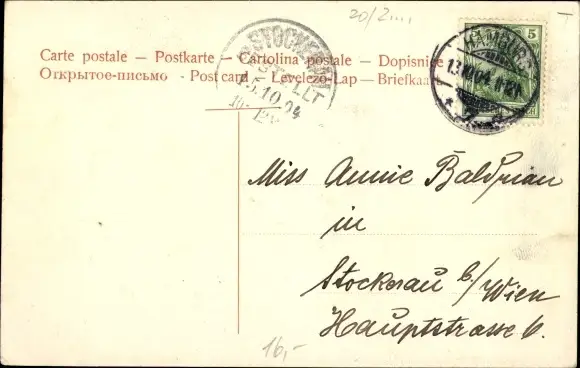 20/2
Carte postale — Postkarte — Cartolina postale — Dopisnice
Открытое-письмо - Postcard — Levelező-Lap — Briefkaa
STOCKERAU
15.10.04
BESTELLT
HAMBURG
13.10.04
5
Miss Annie Baldrian
in
Stockerau b/Wien
Hauptstrasse 6.
16,-